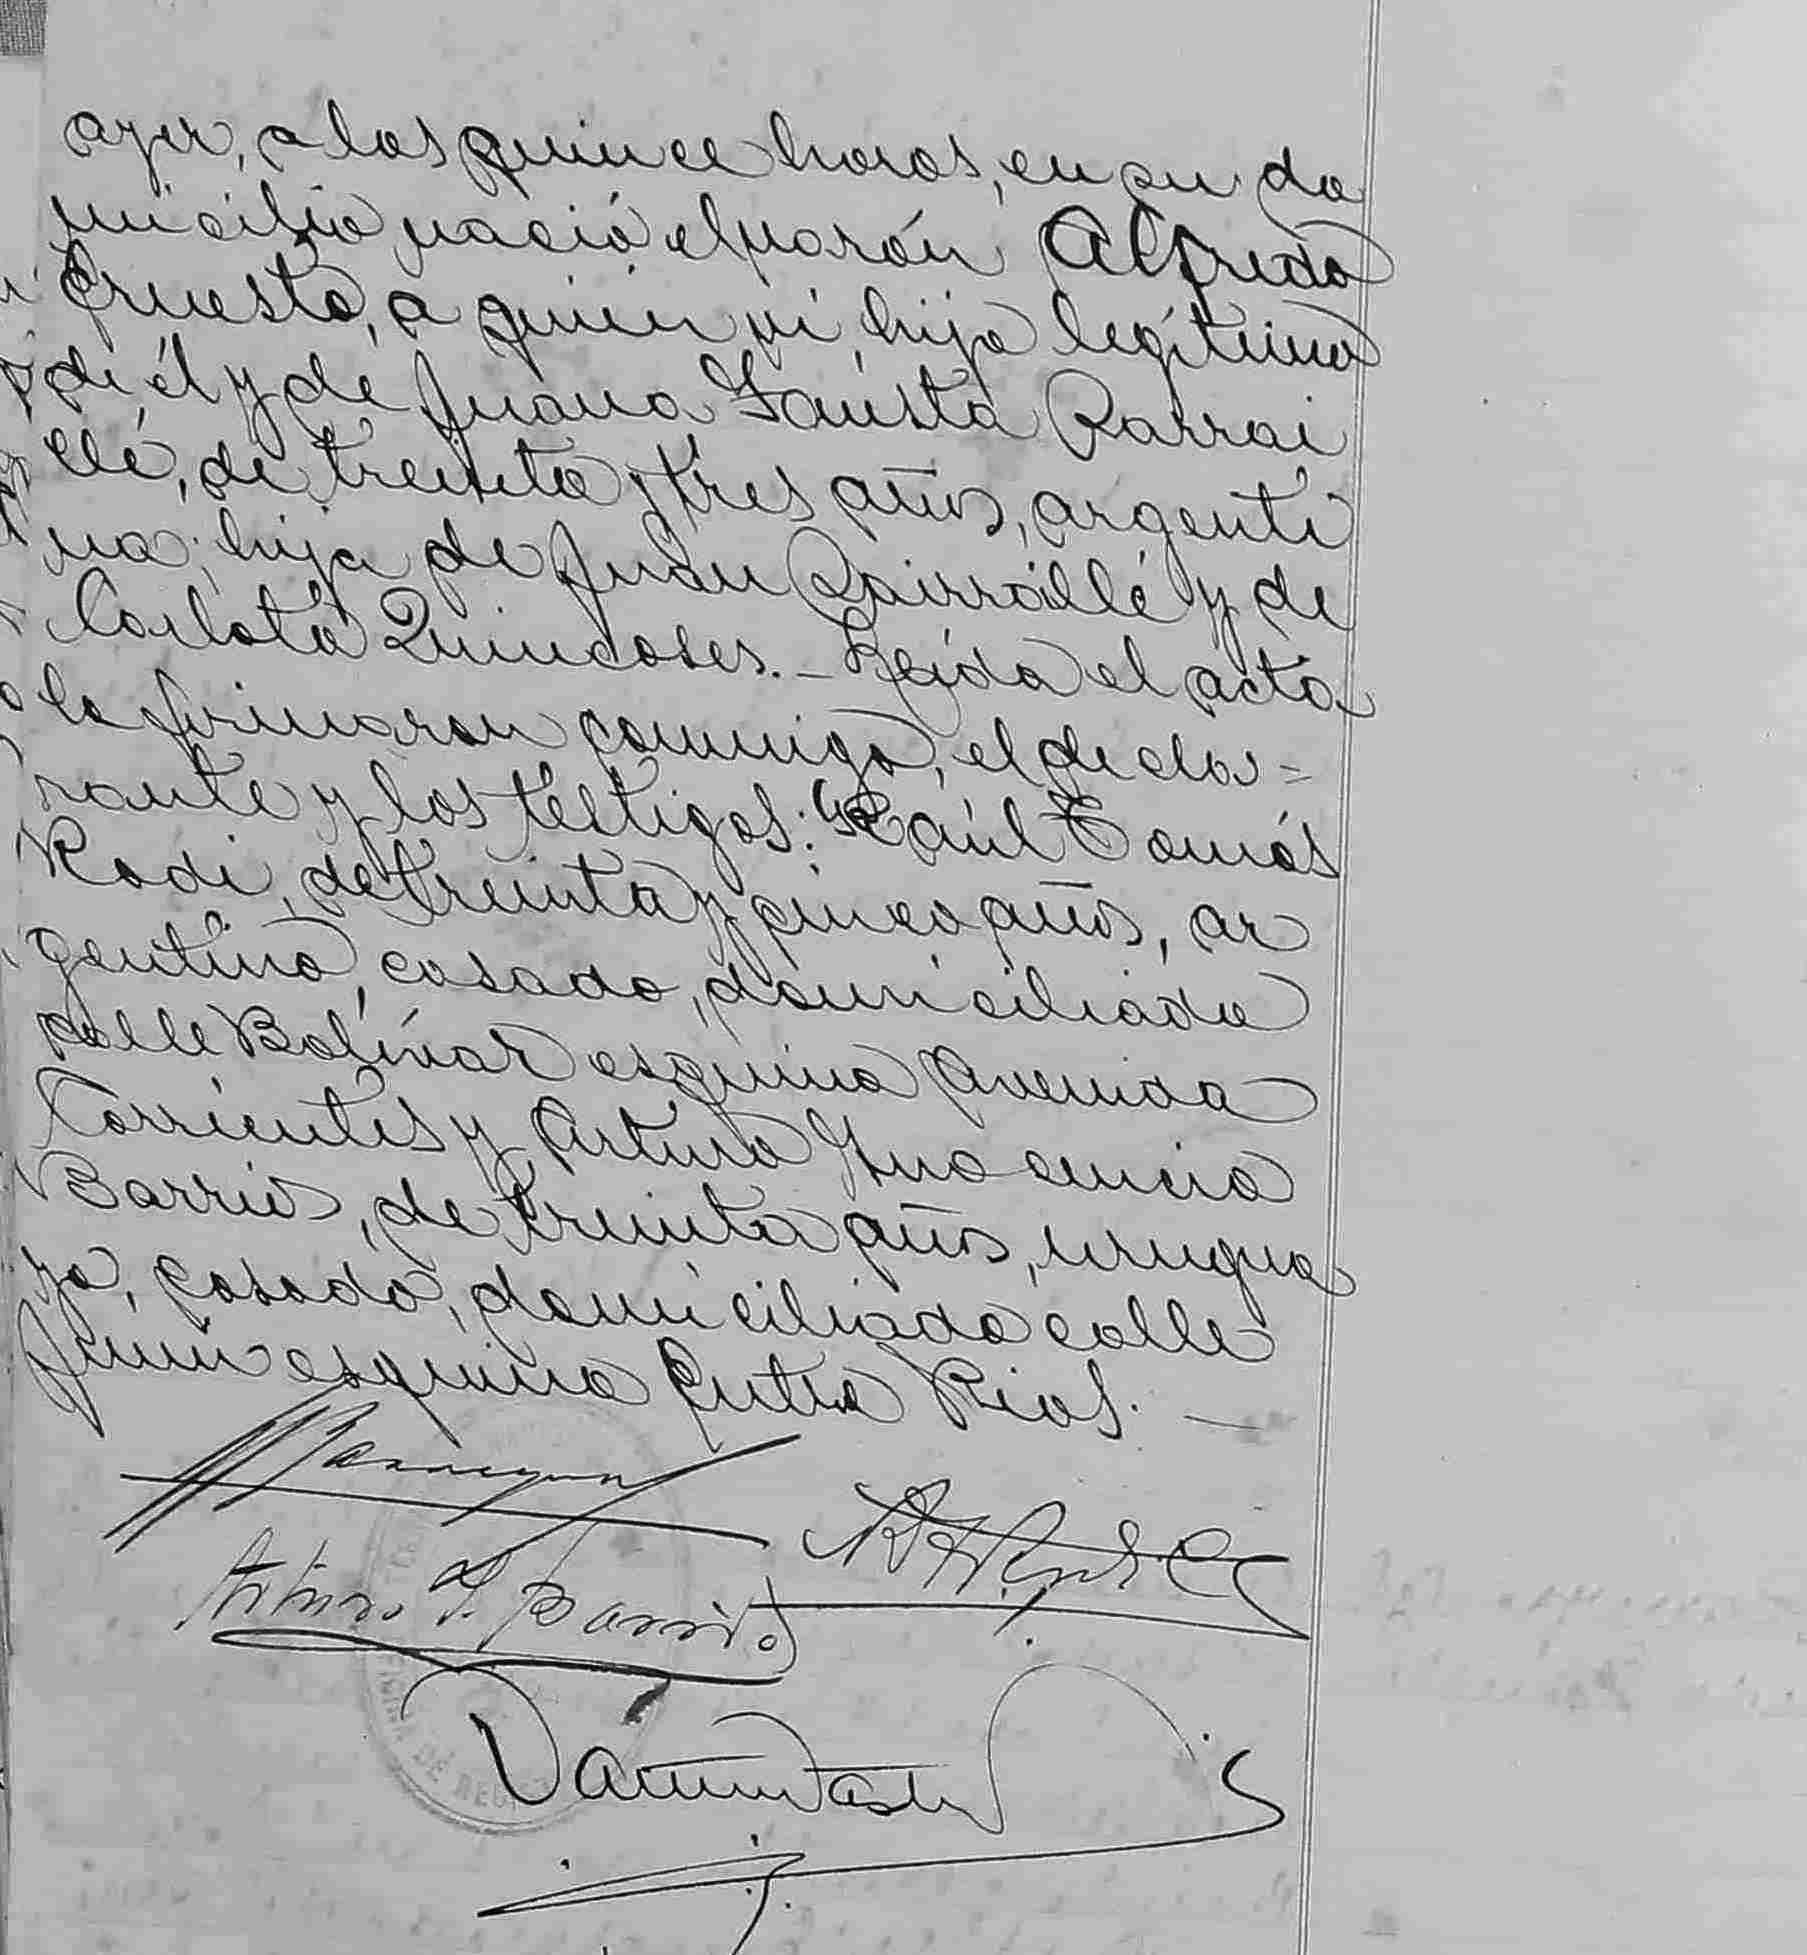 ayer, a las quince horas, en su do
micilio nació el varón Alfredo
Ernesto, a quien vi, hijo legítimo
de él y de Juana Fausta Barrai
llé, de treinta y tres años, argenti
na; hija de Juan Bairraillé y de
Carlota Quindoses.- Leída el acta
la firmaron conmigo, el decla=
rante y los testigos: Raúl Tomás
Rodi, de treinta y cinco años, ar
gentino, casado, domiciliado
calle Bolívar esquina Avenida
Corrientes y Arturo Inocencio
Barrios, de treinta años, urugua
yo, casado, domiciliado calle
Junín esquina Entre Rios. —
Arturo I. Barrios
DE